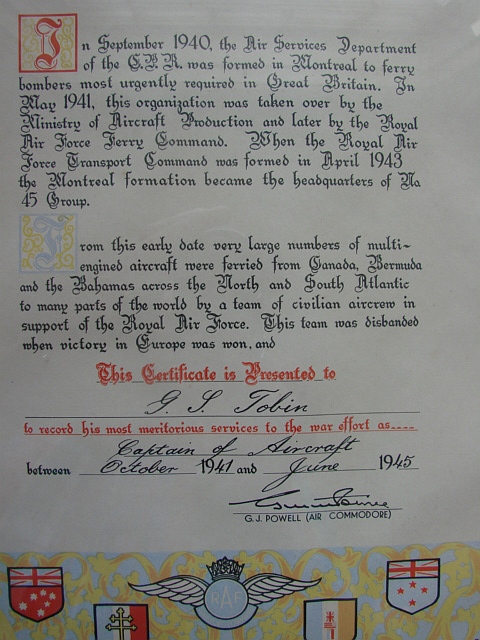 In September 1940, the Air Services Department
of the C.P.R. was formed in Montreal to ferry
bombers most urgently required in Great Britain. In
May 1941, this organization was taken over by the
Ministry of Aircraft Production and later by the Royal
Air Force Ferry Command. When the Royal Air
Force Transport Command was formed in April 1943
the Montreal formation became the headquarters of No
45 Group.
From this early date very large numbers of multi-
engined aircraft were ferried from Canada, Bermuda
and the Bahamas across the North and South Atlantic
to many parts of the world by a team of civilian aircrew in
support of the Royal Air Force. This team was disbanded
when victory in Europe was won, and
This Certificate is Presented to
G. S. Tobin
to record his most meritorious services to the war effort as....
Captain of Aircraft
between October 1941 and June 1945
G.J. POWELL (AIR COMMODORE)
RAF